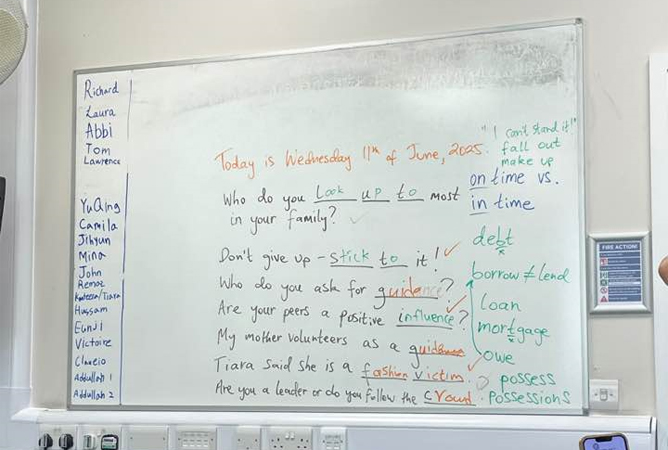 Richard
Laura
Abbi
Tom
Lawrence
YuQing
Camila
Jihyun
Mina
John
Hassam
Eunji
Victoire
Abdullah 1
Abdullah 2
Today is Wednesday 11th of June, 2025.
Who do you look up to most
in your family?
Don't give up - stick to it!
Who do you ask for guidance?
Are your peers a positive influence?
My mother volunteers as a
Tiara said she is a fashion victim.
Are you a leader or do you follow the crowd.
"I can't stand it!"
fall out
make up
on time vs.
in time
debt
borrow ≠ lend
loan
mortgage
owe
possess
possessions
FIRE ACTION